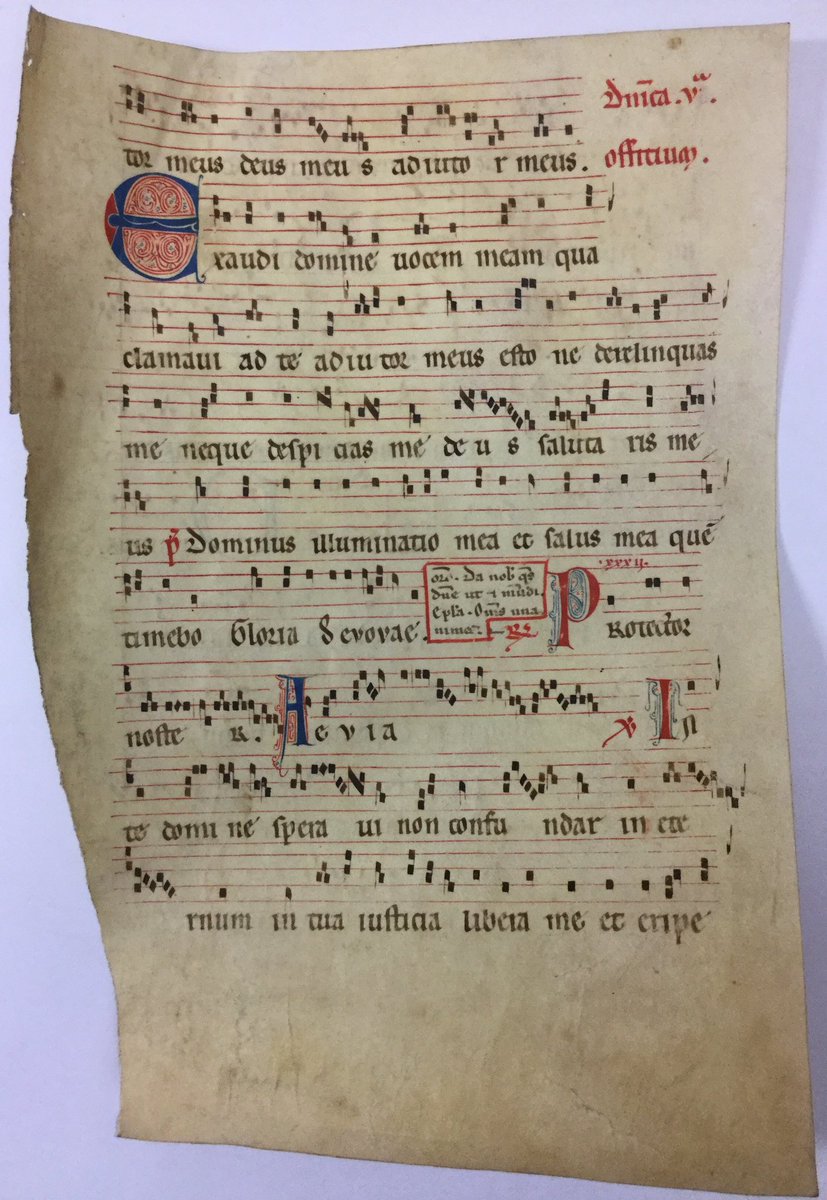 Dnica. va.
tor meus deus meu s adiuto r meus. offitium.
Exaudi domine uocem meam qua
clamaui ad te adiutor meus esto ne derelinquas
me neque despi cias me de u s saluta ris me
us ps Dominus illuminatio mea et salus mea quē
timebo Gloria Seuouae.
Da nob qs
dn̄e ut
.xxxij.
Protector
noster R. Aeuia In
te domi ne spera ui non confu ndar in ete
rnum in tua iusticia libera me et eripe